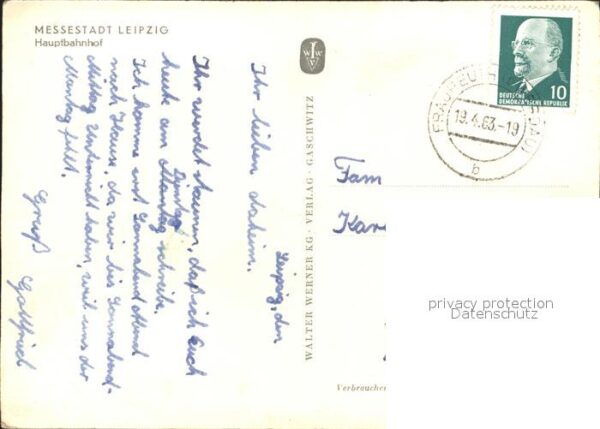 MESSESTADT LEIPZIG
Hauptbahnhof
Leipzig, den
Ihr lieben daheim.
Ihr werdet staunen, daß ich Euch
heute am Dienstag schreibe.
Ich komme erst Sonnabend Abend
nach Haus, da wir bis Sonnabend-
Mittag Unterricht haben, weil uns der
Montag fehlt.
Gruß
WALTER WERNER KG · VERLAG · GASCHWITZ
WWV
DEUTSCHE
DEMOKRATISCHE REPUBLIK
10
19.4.63.-19
b
Fam
Kar
Verbraucher
privacy protection
Datenschutz